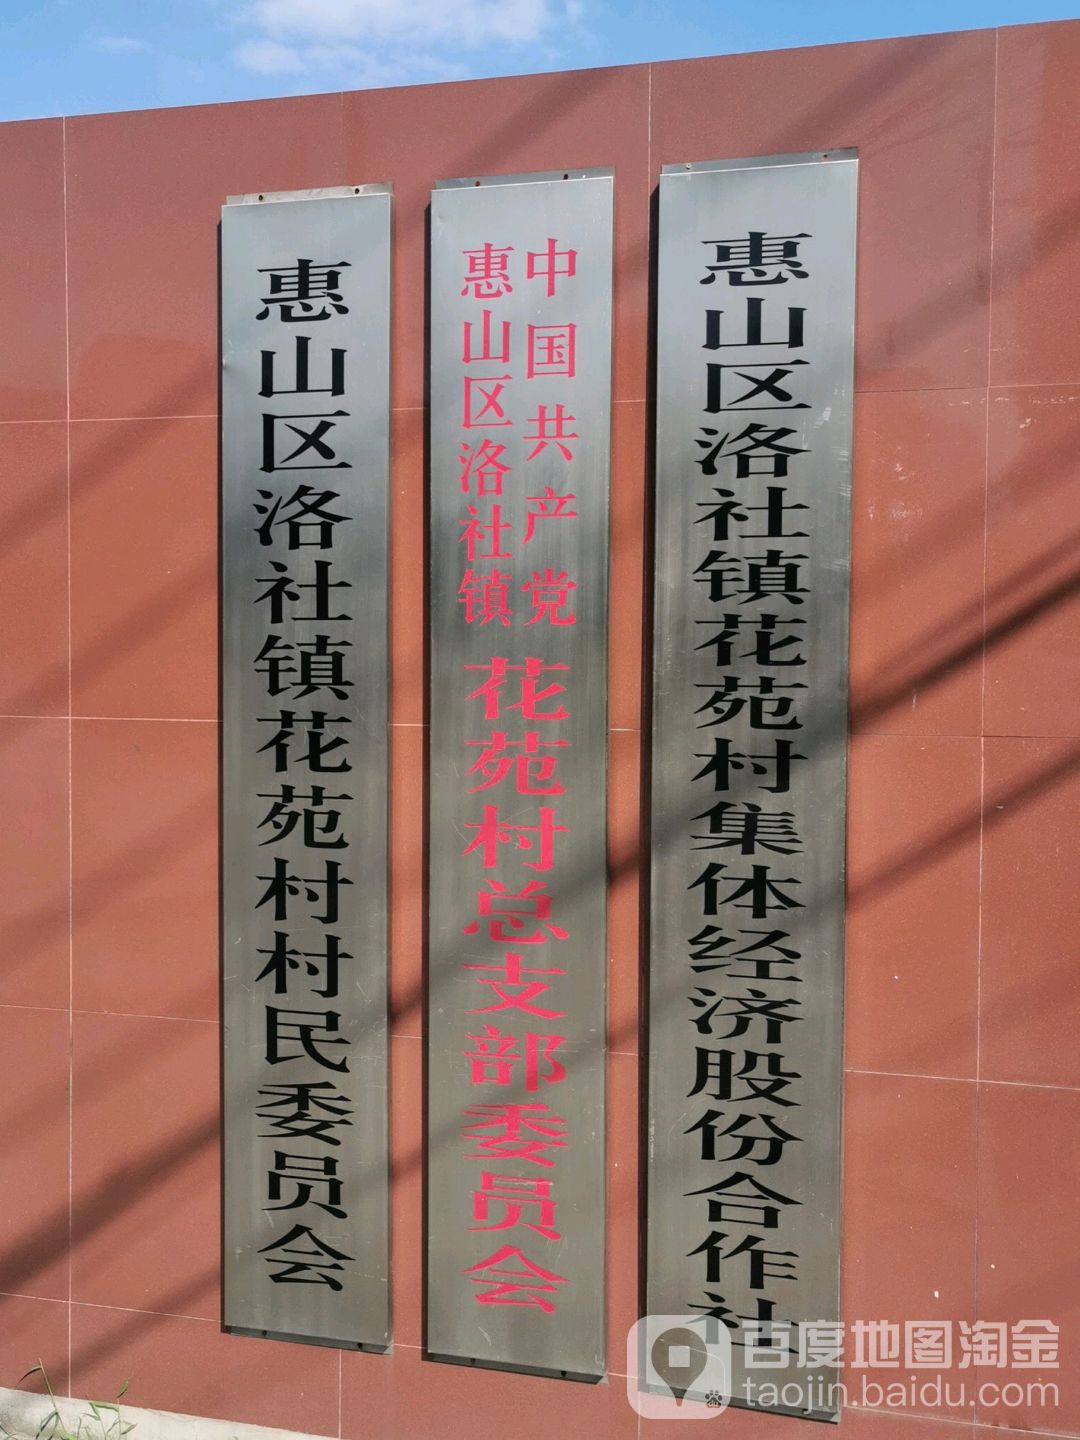 惠山区洛社镇花苑村村民委员会
中国共产党
惠山区洛社镇
花苑村总支部委员会
惠山区洛社镇花苑村集体经济股份合作社
百度地图淘金
taojin.baidu.com